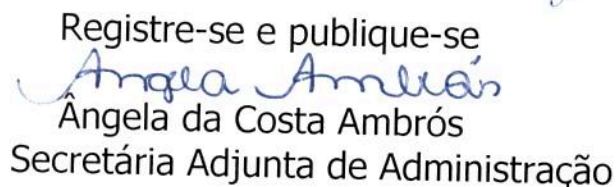 Registre-se e publique-se
Angela Ambrós
Ângela da Costa Ambrós
Secretária Adjunta de Administração